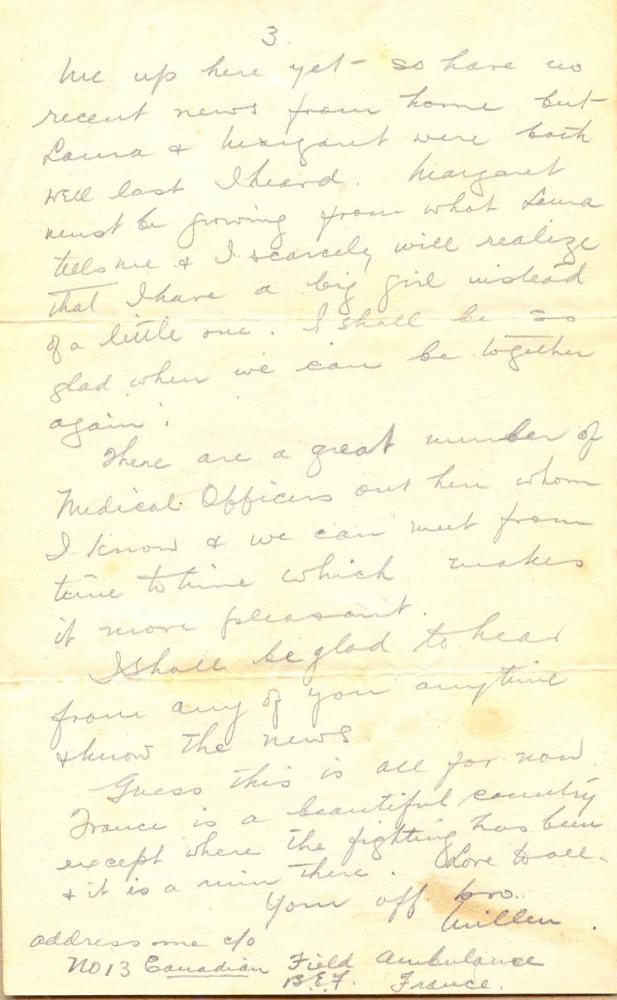 3.
me up here yet - so have no
recent news from home but
Laura & Margaret were both
well last I heard. Margaret
must be growing from what Laura
tells me & I scarcely will realize
that I have a big girl instead
of a little one. I shall be so
glad when we can be together
again.
There are a great number of
Medical Officers out here whom
I know & we can meet from
time to time which makes
it more pleasant.
I shall be glad to hear
from any of you anytime
& know the news
Guess this is all for now
France is a beautiful country
except where the fighting has been
& it is a ruin there. Love to all.
Your aff bro.
Millen.
address me c/o
No 13 Canadian Field Ambulance
B.E.F. France.